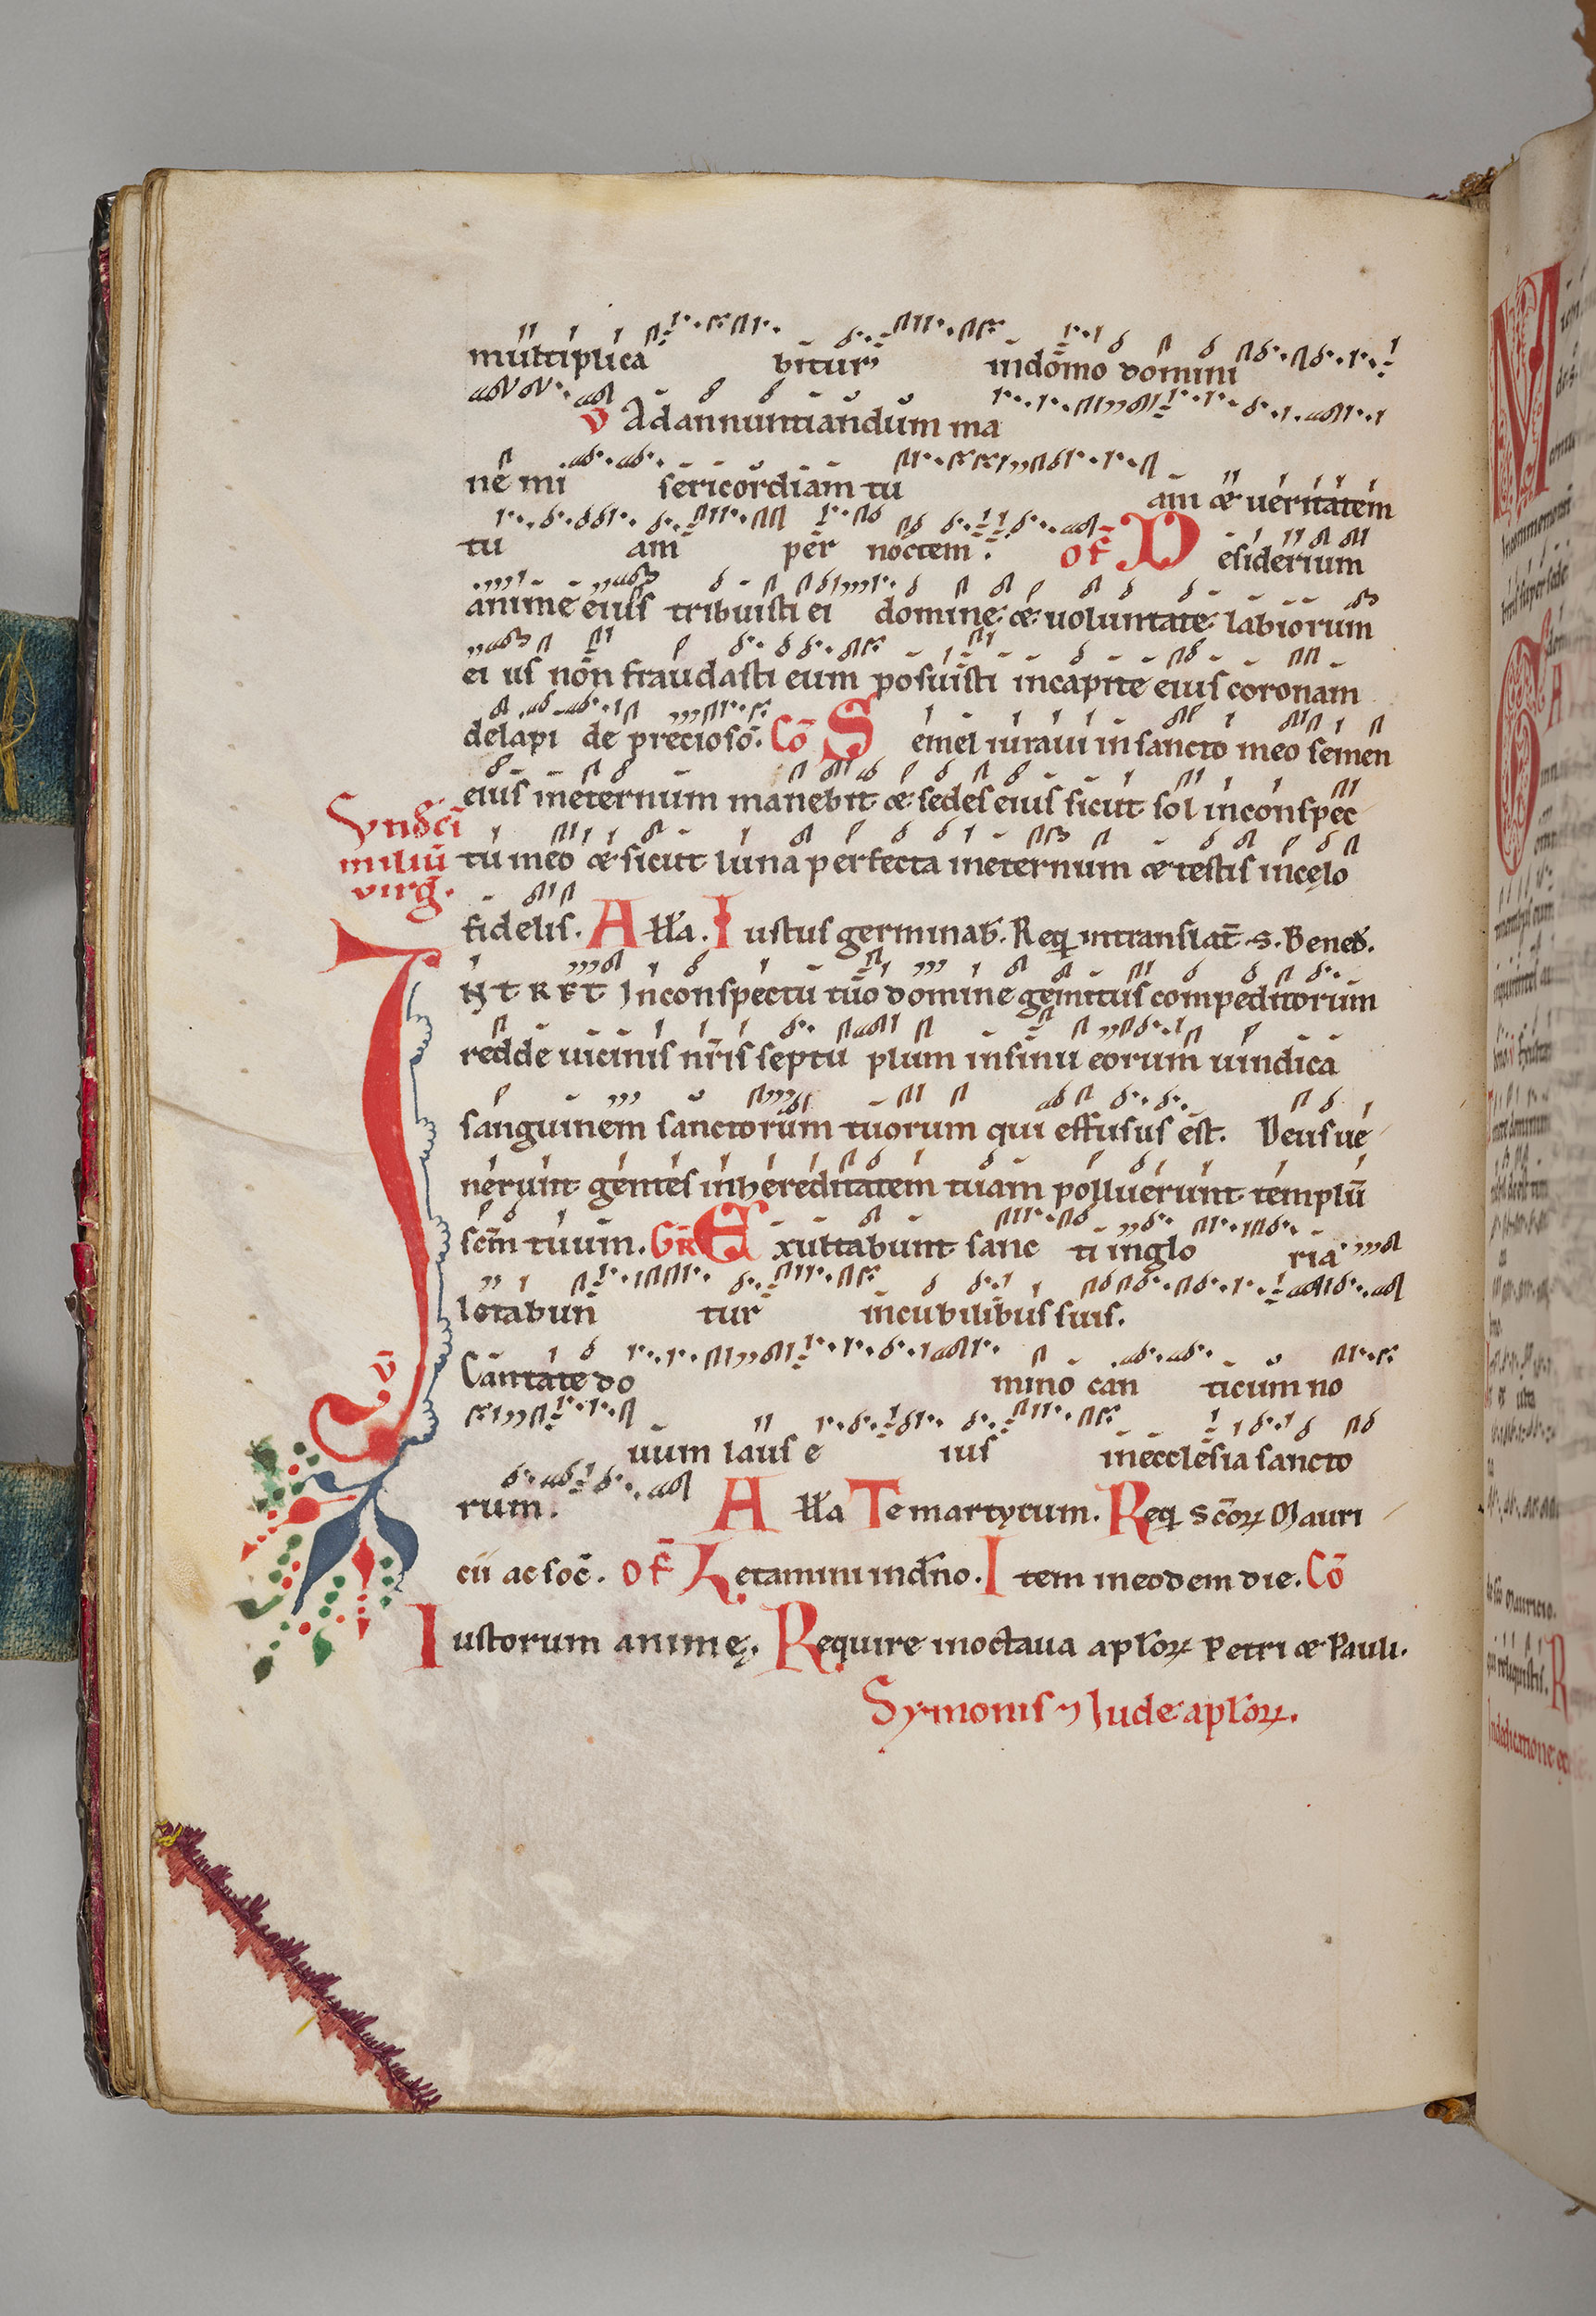 multiplica bitur indomo domini
v Adannuntiandum ma
ne mi sericordiam tu am & ueritatem
tu am per noctem. Of Desiderium
anime eius tribuisti ei domine & uoluntate labiorum
ei us non fraudasti eum posuisti incapite eius coronam
delapi de precioso. Cō Semel iuraui in sancto meo semen
eius ineternum manebit & sedes eius sicut sol inconspec
Undeci
miliū
virg.
tu meo & sicut luna perfecta ineternum & testis incęlo
fidelis. All'a. Iustus germinab. Req intranslat̄ s. Bened.
INTRET Inconspectu tuo domine gemitus compeditorum
redde uicinis nr̄is septu plum insinu eorum uindica
sanguinem sanctorum tuorum qui effusus est. Deus ue
nerunt gentes inhereditatem tuam polluerunt templū
scm̄ tuum. GR Exultabunt sanc ti inglo ria
letabun tur incubilibus suis.
v
Cantate do mino can ticum no
uum laus e ius inecclesia sancto
rum. All'a Te martyrum. Req scōꝝ Mauri
cii ac soc̄. Of Letamini indn̄o. Item ineodem die. Cō
Iustorum animę. Require inoctaua apl'oꝝ Petri & Pauli.
Symonis ⁊ Iude apl'oꝝ.